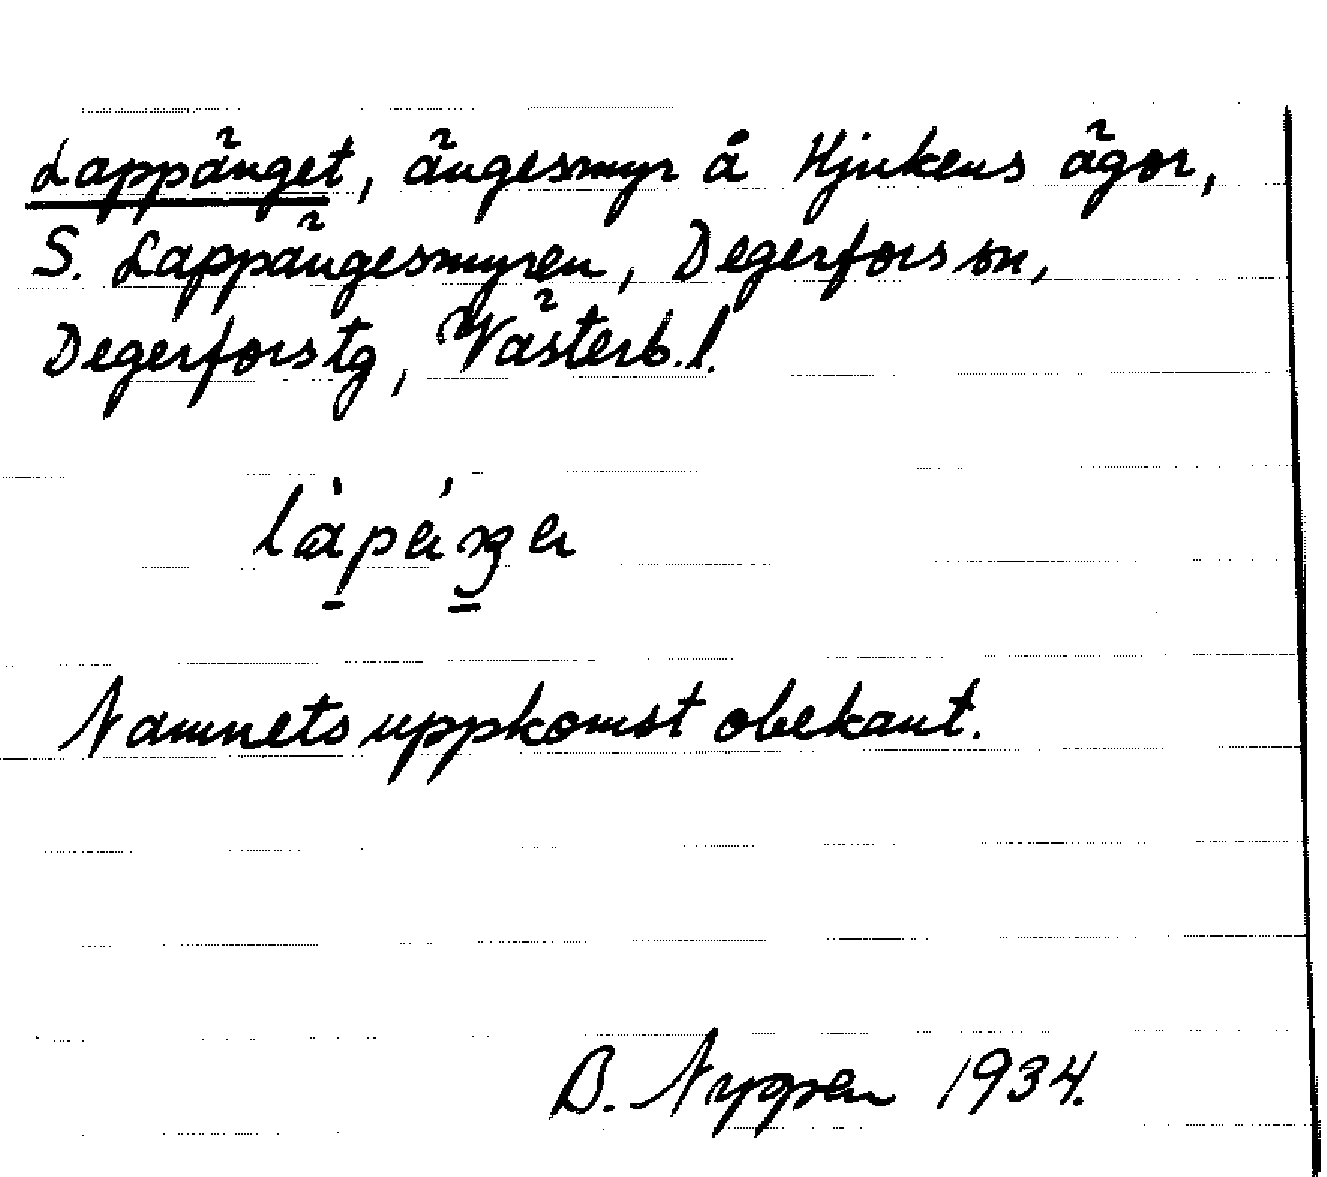 Lappänget, ängesmyr å Hjukens ägor,
S. Lappängesmyren, Degerfors sn,
Degerfors tg, Västerb. l.
Namnets uppkomst obekant.
B. Nygren 1934.